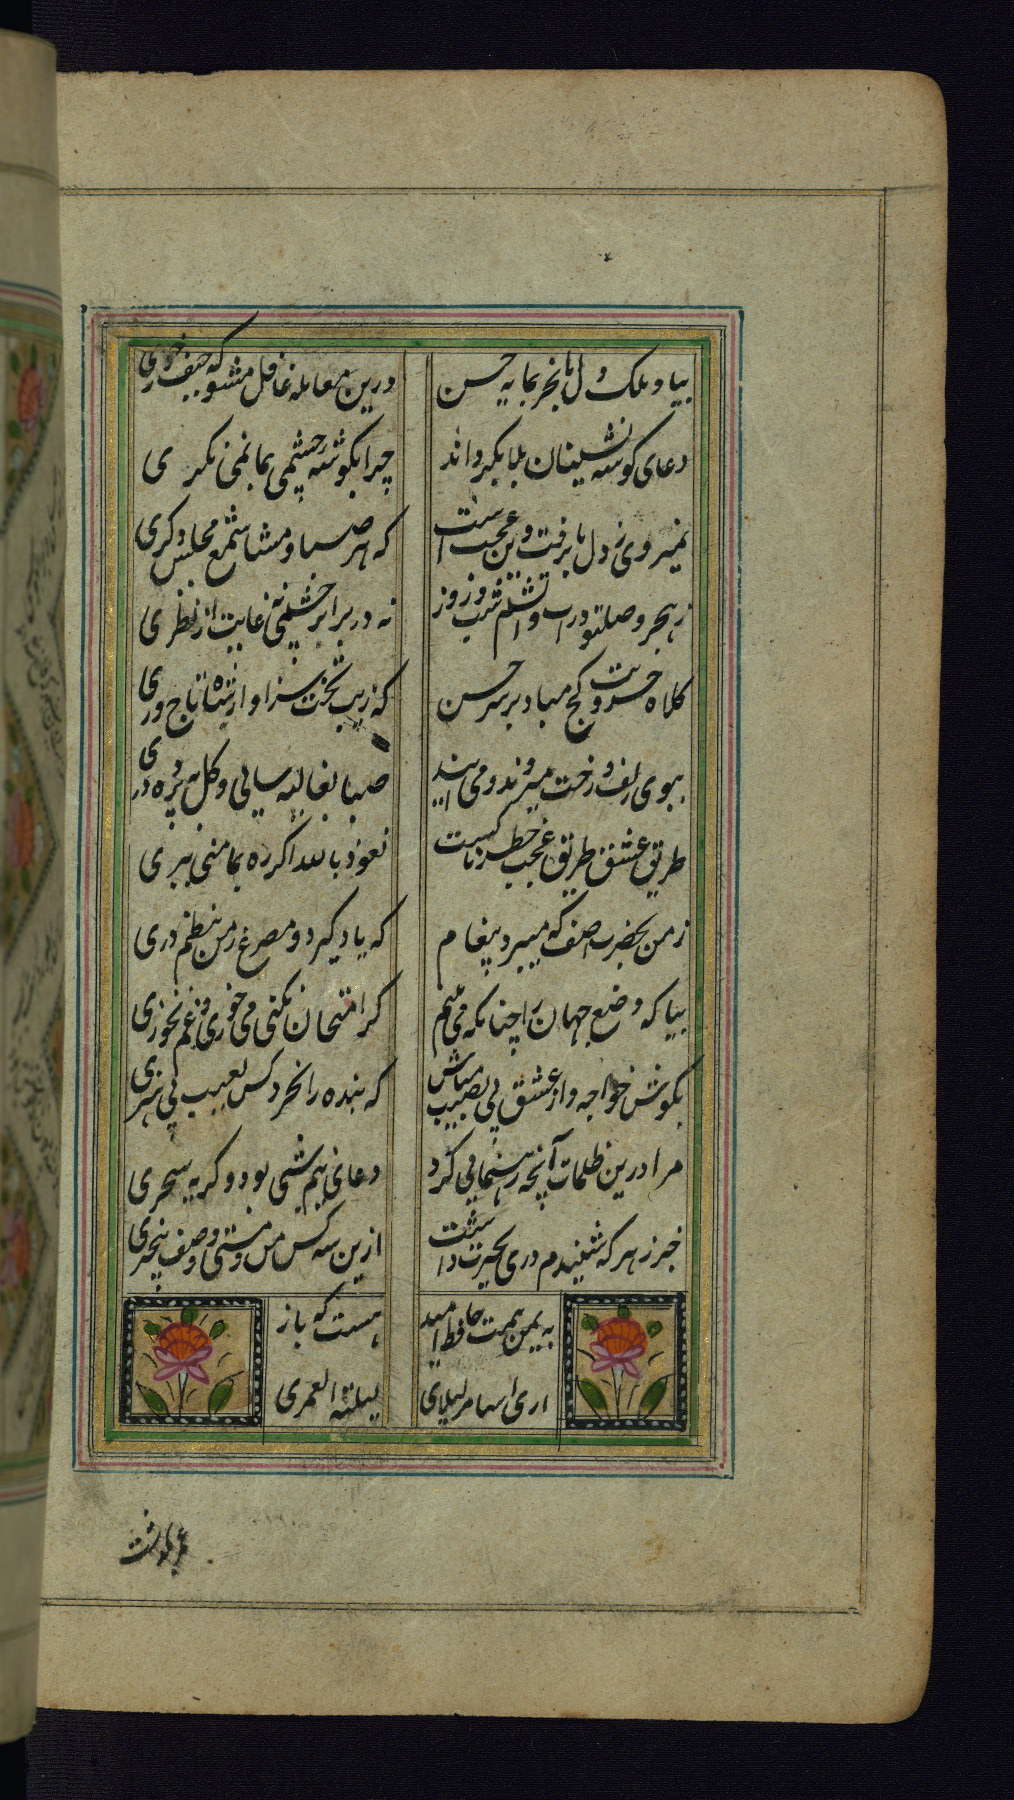 بیا و ملک دل ما بخر بمایه حسن
درین معامله غافل مشو که حیف خوری
دعای گوشه نشینان بلا بگرداند
چرا بگوشه چشمی بما نمی نکری
نمیروی ز دل ما برفت وین عجب است
که هر صبا و مسا شمع مجلس دگری
ز هجر و وصل تو در
نه در برابر چشمی نه غایب از نظری
کلاه حسرویت کج مباد بر سر حسن
که زیب تخت و سزاوار تاج وری
ببوی زلف و رخت میروند و می آیند
صبا بغالیه سایی و کل به پرده دری
طریق عشق طریق عجب خطرناکست
نعوذ بالله اگر ره بمامنی نبری
ز من بحضرت آصف که میبرد پیغام
که یاد گیرد دو مصرع ز من بنظم دری
بیا که وضع جهان را چنانکه می بینم
گر امتحان بکنی می خوری و غم نخوری
بکوش خواجه و از عشق بی نصیب مباش
که بنده را نخرد کس بعیب بی هنری
مرا درین ظلمات آنچه رهنمایی کرد
دعای نیم شبی بود و گریه سحری
خبر ز هر که شنیدم دری بحیرت داشت
ازین سپس من و مستی و وصف بیخبری
به یمن همت حافظ امید
هست که باز
اری اسامر لیلای
لیلته القمری